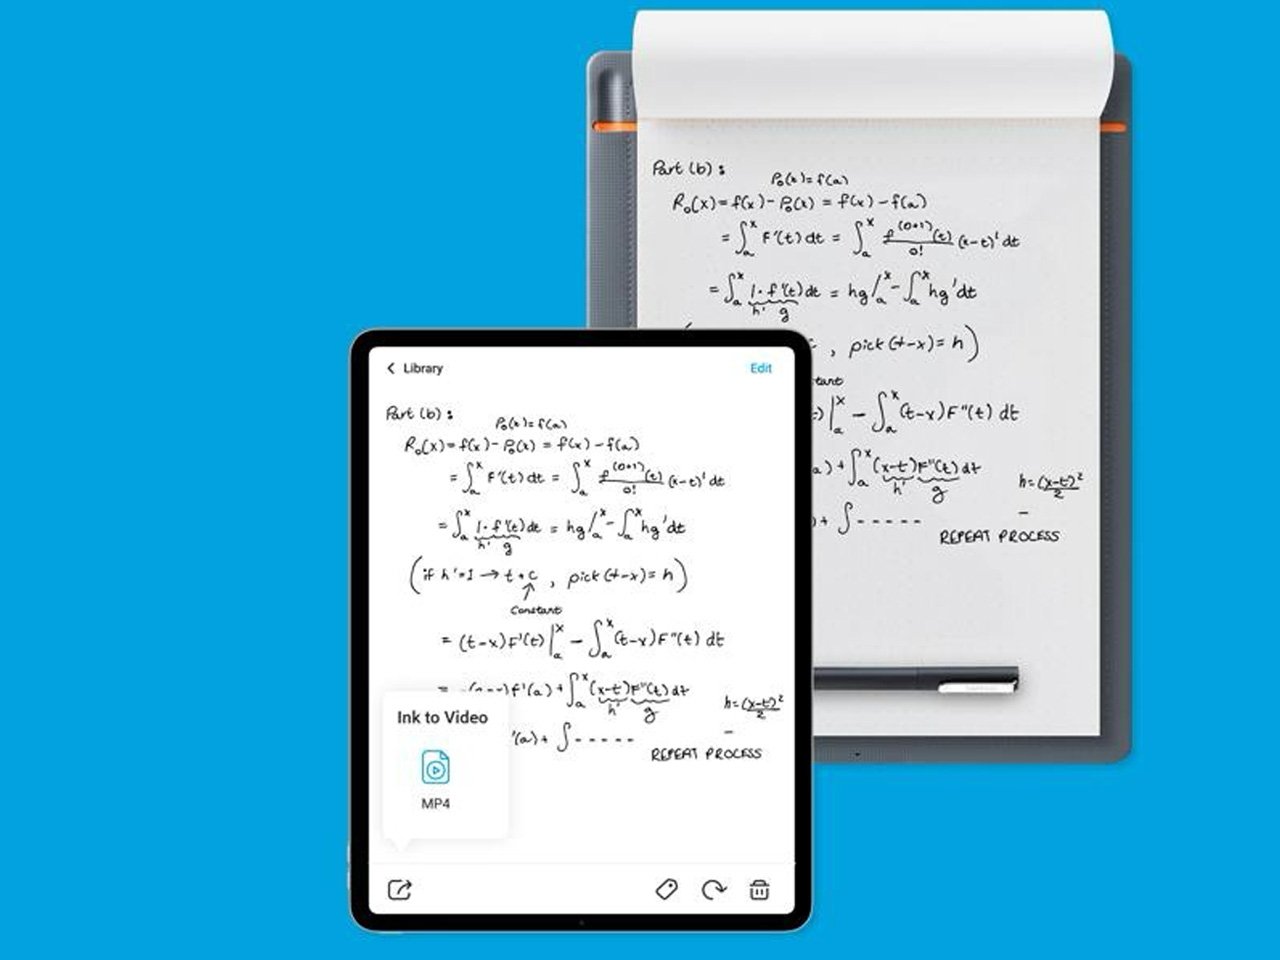 Part (b) :
P₀(x) = f(a)
R₀(x) = f(x) - P₀(x) = f(x) - f(a)
= ∫ₐˣ F'(t) dt = ∫ₐˣ f⁽⁰⁺¹⁾(t)/0! (x-t)' dt
= ∫ₐˣ 1·f'(t) dt = hg/ₐˣ - ∫ₐˣ hg' dt
h' g
, pick (t-x) = h)
= (t-x) F''(t) dt
h = (x-t)²/2
REPEAT PROCESS
Library
Edit
Part (b) :
P₀(x) = f(a)
R₀(x) = f(x) - P₀(x) = f(x) - f(a)
= ∫ₐˣ F'(t) dt = ∫ₐˣ f⁽⁰⁺¹⁾(t)/0! (x-t)' dt
= ∫ₐˣ 1·f'(t) dt = hg/ₐˣ - ∫ₐˣ hg' dt
h' g
(if h'=1 → t+c , pick (t-x) = h)
↑
Constant
= (t-x) F'(t) |ₐˣ - ∫ₐˣ (t-x) F''(t) dt
f'(a) + ∫ₐˣ (x-t) F''(t) dt
h' g
h = (x-t)²/2
'(a) + ∫ - - - - -
REPEAT PROCESS
Ink to Video
MP4